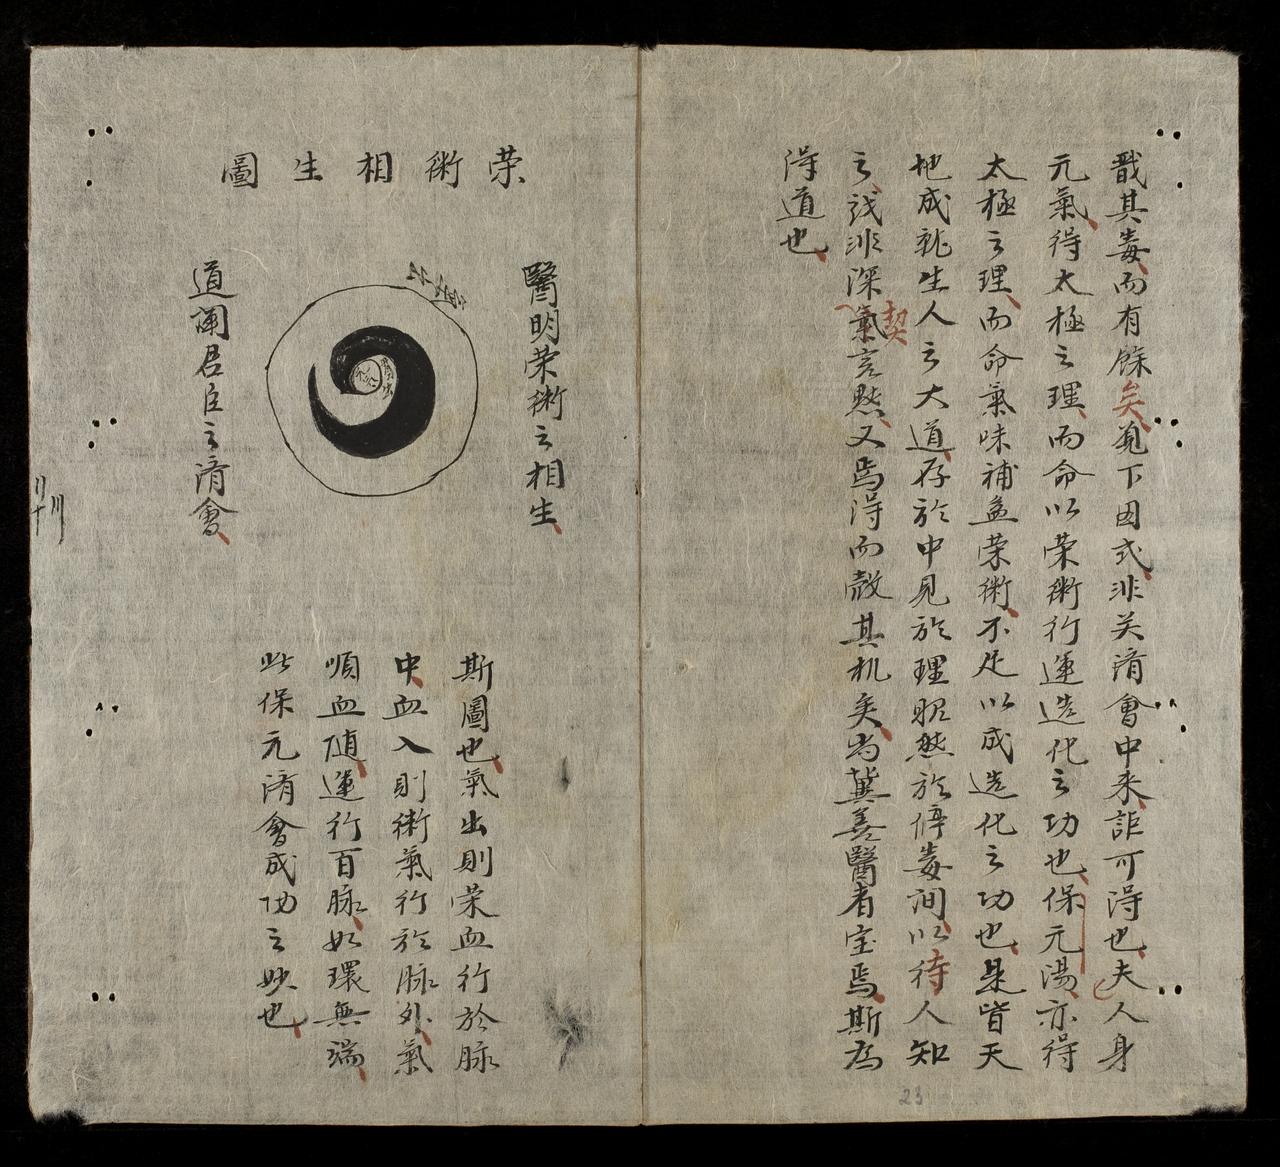 戬其毒而有餘矣覓下因式非关済會中来詎可淂也夫人身
元氣得太極之理而命以荣術行運造化之功也保元湯亦得
太極之理而命氣味補益荣術不足以成造化之功也是皆天
地成就生人之大道存於中見於理昭然於停毒间以待人知
之哉非深氣言然又焉淂而殼其机矣尚冀善醫者宝焉斯為
契
淂道也
荣術相生圖
醫明荣術之相生
道闡君臣之済會
斯圖也氣出則荣血行於脉
中血入則術氣行於脉外氣
順血随運行百脉如環無端
此保元済會成功之妙也
23